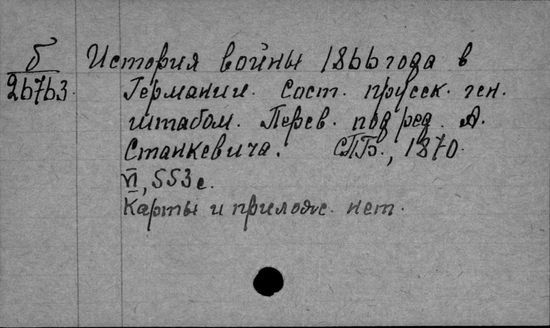 б История войны 1866 года в
26763. Германии. Сост. прусск. ген.
штабом. Перев. под ред. А.
Станкевича. СПБ., 1870.
VI, 553 с.
Карты и прилож. нет.